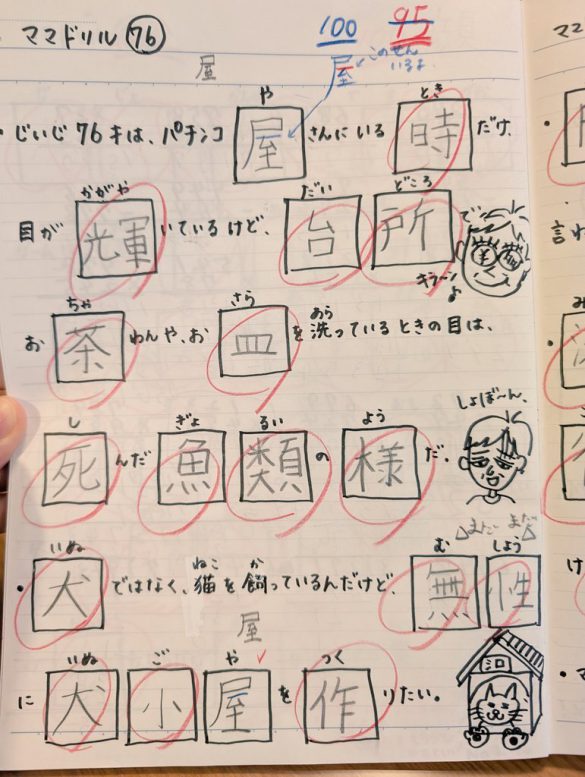 ママドリル 76
100 95
屋 屋 このせん
いるよ
や とき
・じいじ76才は、パチンコ屋さんにいる時だけ、
かがや だい どころ
目が輝いているけど、台所で、
キラーン
ちゃ さら あら
お茶わんや、お皿を洗っているときの目は、
しょぼ〜ん、
し ぎょ るい よう
死んだ魚類の様だ。
まだ まだ
いぬ ねこ か む しょう
・犬ではなく、猫を飼っているんだけど、無性
屋
いぬ ご や つく
に犬小屋を作りたい。
ママ
言わ
け